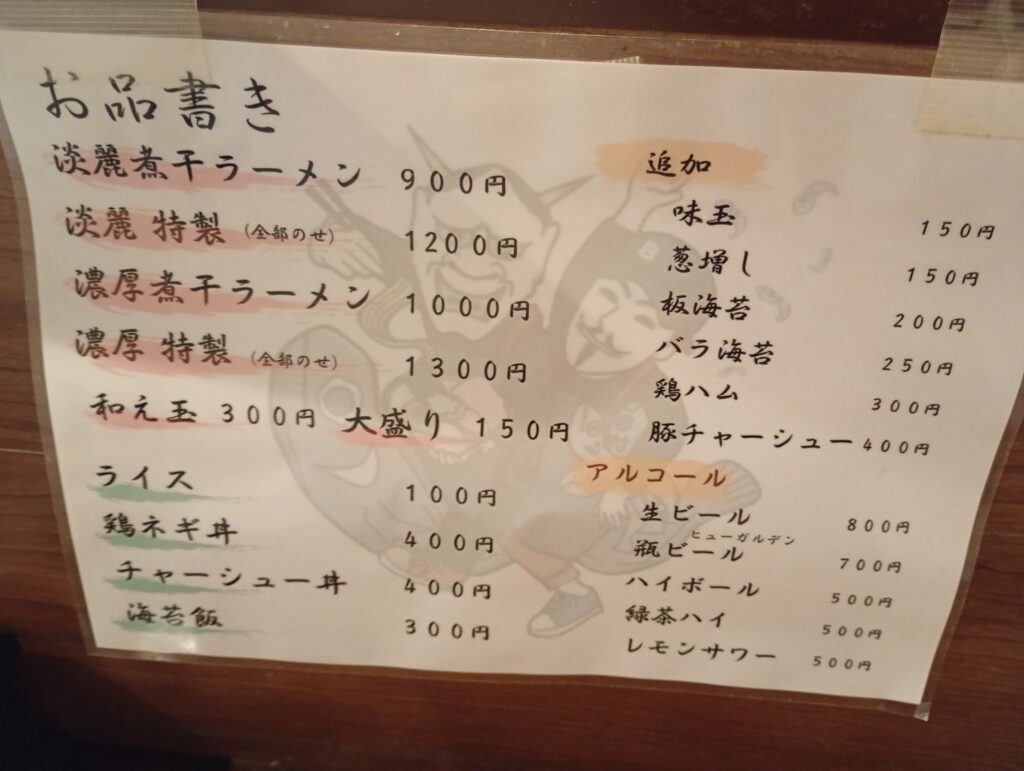 お品書き
淡麗煮干ラーメン 900円
淡麗 特製 (全部のせ) 1200円
濃厚煮干ラーメン 1000円
濃厚 特製 (全部のせ) 1300円
和え玉 300円 大盛り 150円
ライス 100円
鶏ネギ丼 400円
チャーシュー丼 400円
海苔飯 300円
追加
味玉 150円
葱増し 150円
板海苔 200円
バラ海苔 250円
鶏ハム 300円
豚チャーシュー 400円
アルコール
生ビール 800円
ヒューガルデン
瓶ビール 700円
ハイボール 500円
緑茶ハイ 500円
レモンサワー 500円
B